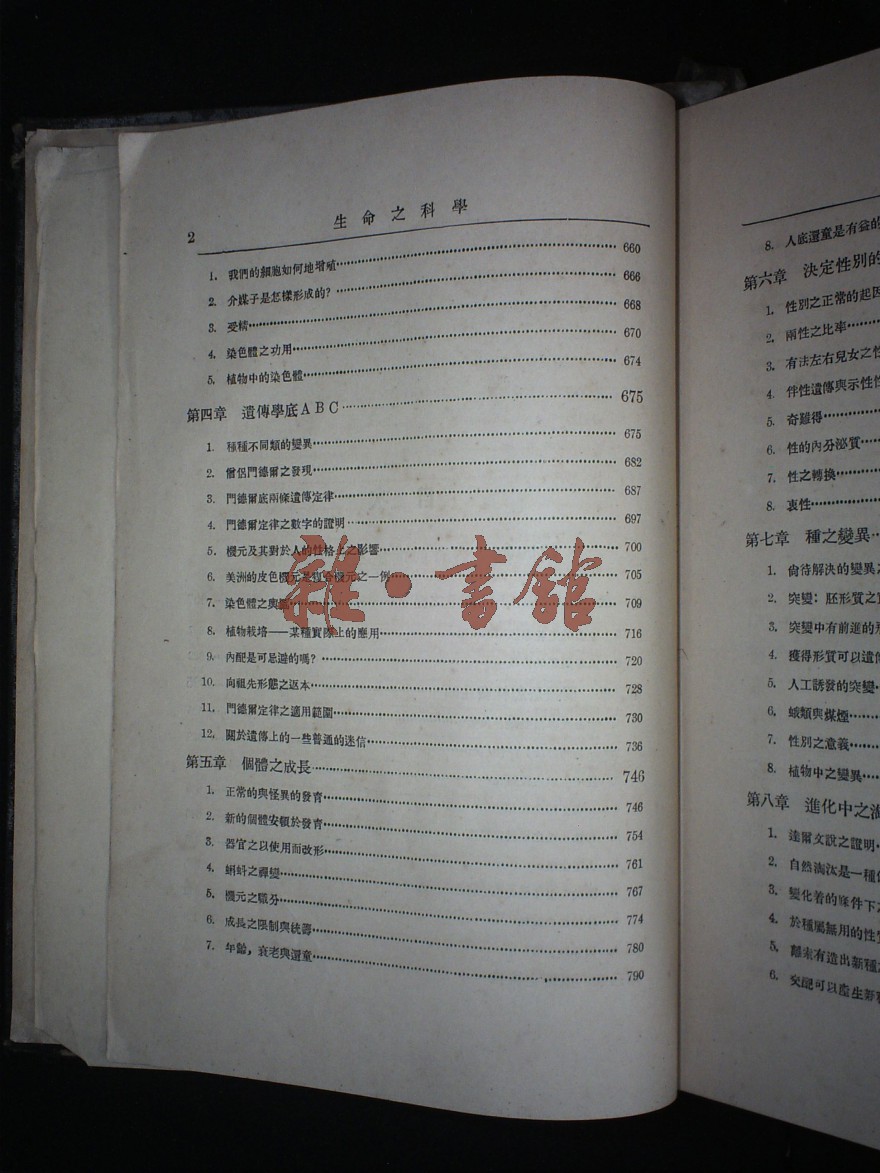 2
生命之科學
1. 我們的細胞如何地增殖 660
2. 介媒子是怎樣形成的? 666
3. 受精 668
4. 染色體之功用 670
5. 植物中的染色體 674
第四章 遺傳學底ABC 675
1. 種種不同類的變異 675
2. 僧侶門德爾之發現 682
3. 門德爾底兩條遺傳定律 687
4. 門德爾定律之數字的證明 697
5. 機元及其對於人的性格上之影響 700
6. 美洲的皮色機元是複合機元之一例 705
7. 染色體之奧 709
8. 植物栽培——某種實際上的應用 716
9. 內配是可忌避的嗎? 720
10. 向祖先形態之返本 728
11. 門德爾定律之適用範圍 730
12. 關於遺傳上的一些普通的迷信 736
第五章 個體之成長 746
1. 正常的與怪異的發育 746
2. 新的個體安頓於發育 754
3. 器官之以使用而改形 761
4. 蝌蚪之禪變 767
5. 機元之職分 774
6. 成長之限制與統籌 780
7. 年齡,衰老與還童 790
雜·書館
8. 人底還童是有益的
第六章 決定性別的
1. 性別之正常的起因
2. 兩性之比率
3. 有法左右兒女之性
4. 伴性遺傳與示性性
5. 奇難得
6. 性的內分泌質
7. 性之轉換
8. 衷性
第七章 種之變異
1. 尙待解決的變異之
2. 突變: 胚形質之
3. 突變中有前進的
4. 獲得形質可以遺
5. 人工誘發的突變
6. 蛾類與煤煙
7. 性別之意義
8. 植物中之變異
第八章 進化中之淘
1. 達爾文說之證明
2. 自然淘汰是一種
3. 變化着的條件下
4. 於種屬無用的性
5. 離索有造出新種
6. 交配可以產生新